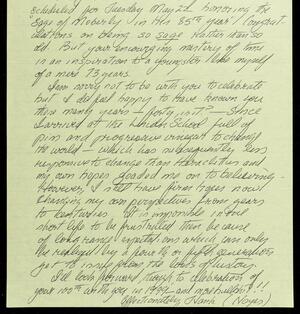 scheduled for Tuesday May 22 honoring the
"Sage of Moberly" in her 85th year! Congrat-
ulations on being so sage rather than so
old. But your encouraging mastery of time
is an inspiration to a youngster like myself
of a mere 73 years.
I am sorry not to be with you to celebrate
but I did feel happy to have known you
these many years — forty, is it? — since
I arrived at the London School full of
vim and progressive vinegar to change
the world — which has subsequently less
responsive to change than Heraclitus and
my own hopes goaded me on to believing.
However, I still have firm hopes now
changing my own perspectives from years
to centuries. It is impossible in the
short life to be frustrated then because
of long range expectations which can only
be realized by a fourth or fifth generation
yet to
I'll look forward, though to celebration of
your 100th with you in 1999 and most
Affectionately Hank (Noyes)